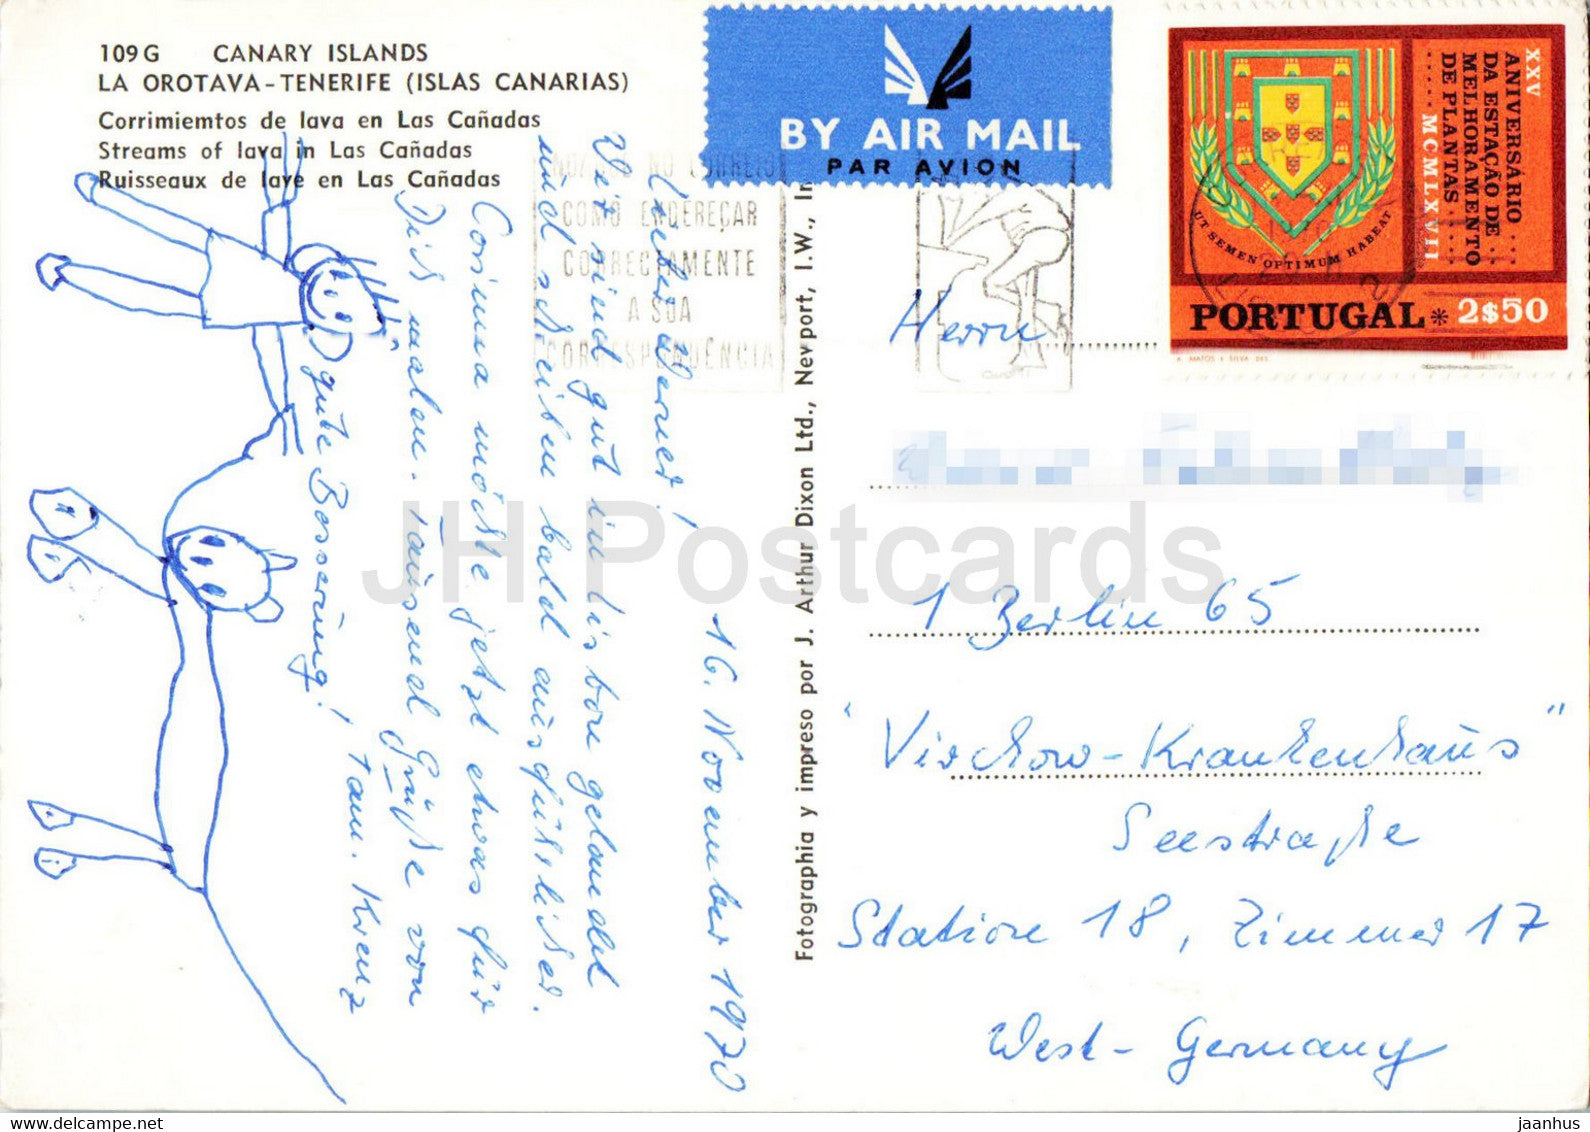 109 G CANARY ISLANDS
LA OROTAVA - TENERIFE (ISLAS CANARIAS)
Corrimiemtos de lava en Las Cañadas
Streams of lava in Las Cañadas
Ruisseaux de lave en Las Cañadas
16. November 1970
Lieber Werner!
Wir sind gut in Lissabon gelandet
und schreiben bald ausführlicher.
Corinna möchte jetzt etwas für
Dich malen. Tausend Grüße von
Fam. Krenz
gute Besserung!
Fotographia y impreso por J. Arthur Dixon Ltd., Newport, I.W., In
BY AIR MAIL
PAR AVION
NO CORREIO
COMO ENDEREÇAR
CORRECTAMENTE
A SUA
CORRESPONDÊNCIA
XXV ANIVERSÁRIO
DA ESTAÇÃO DE
MELHORAMENTO
DE PLANTAS
MCMLXVII
UT SEMEN OPTIMUM HABEAT
PORTUGAL * 2$50
A. MATOS E SILVA DES.
Herrn
1 Berlin 65
"Virchow-Krankenhaus"
Seestraße
Station 18, Zimmer 17
West-Germany
JH Postcards
delcampe.net
jaanhus